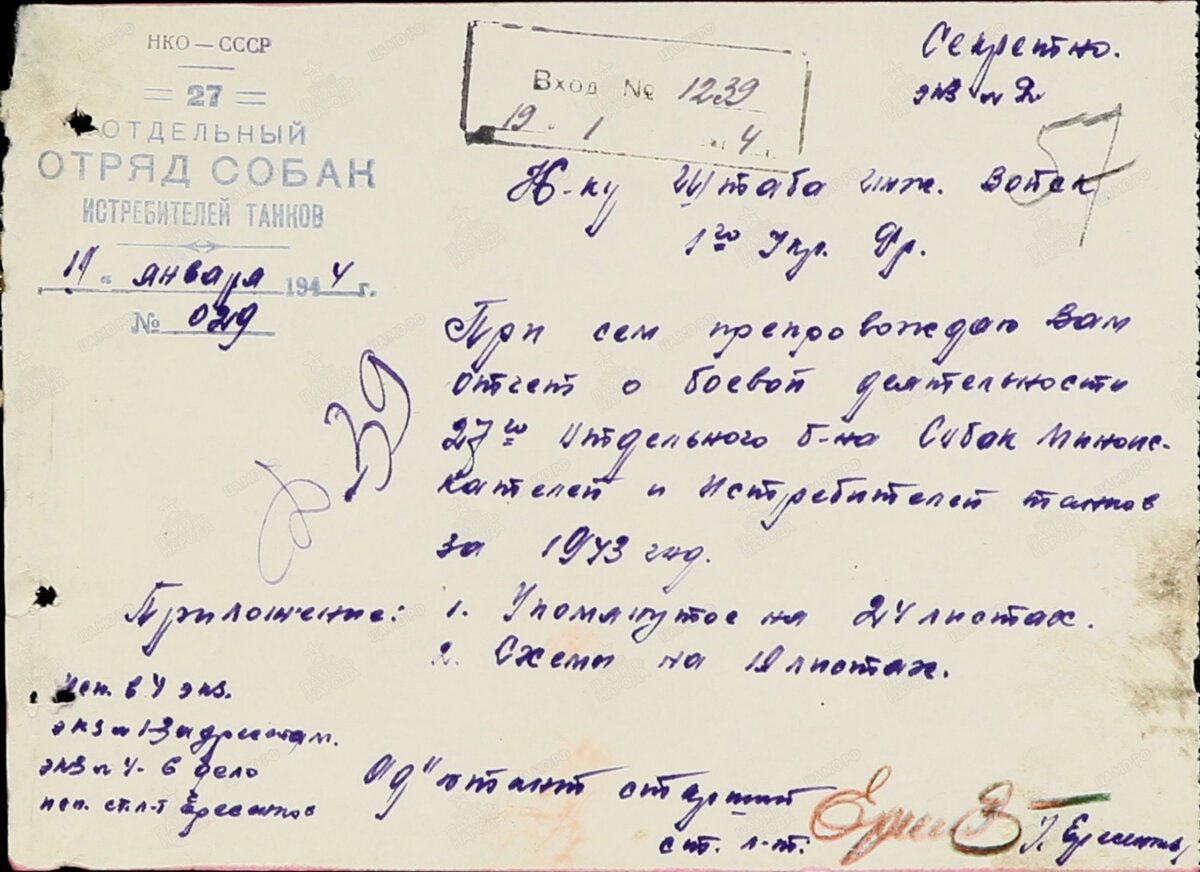 НКО — СССР
= 27 =
ОТДЕЛЬНЫЙ
ОТРЯД СОБАК
ИСТРЕБИТЕЛЕЙ ТАНКОВ
января 1944 г.
№ 029
Вход № 1239
19 1 4
Секретно.
экз № 2
57
Н-ку Штаба инж. войск
1го Укр. Фр.
При сем препровождаю Вам
отчет о боевой деятельности
27го Отдельного б-на Собак Миноис-
кателей и Истребителей танков
за 1943 год.
39
Приложение: 1. Упомянутое на 24 листах.
2. Схемы на листах.
исп. в 4 экз.
экз № 1-3 адресатам.
экз № 4 - в дело
исп. ст. л-т
Ад"ютант старший
ст. л-т: